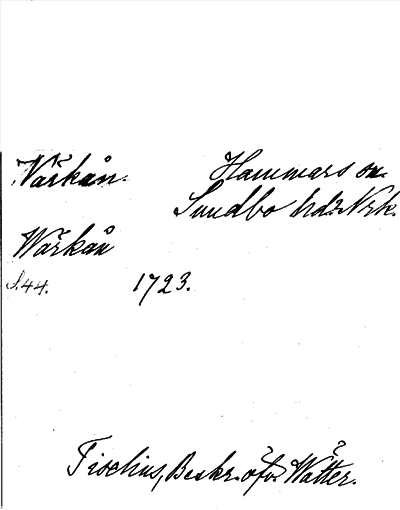 Närkån. Hammars sn.
Sundbo hd. Nrk.
Wärkån
S. 44. 1723.
Tiselius, Beskr. öfv. Wätter.